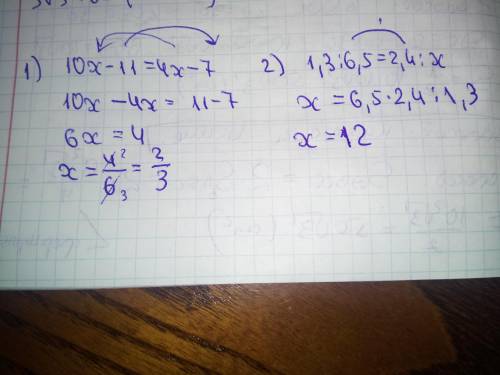 1) 10x-11=4x-7
10x-4x= 11-7
6x=4
x=4²/6₃=2/3
2) 1,3:6,5=2,4:x
x=6,5·2,4:1,3
x=12